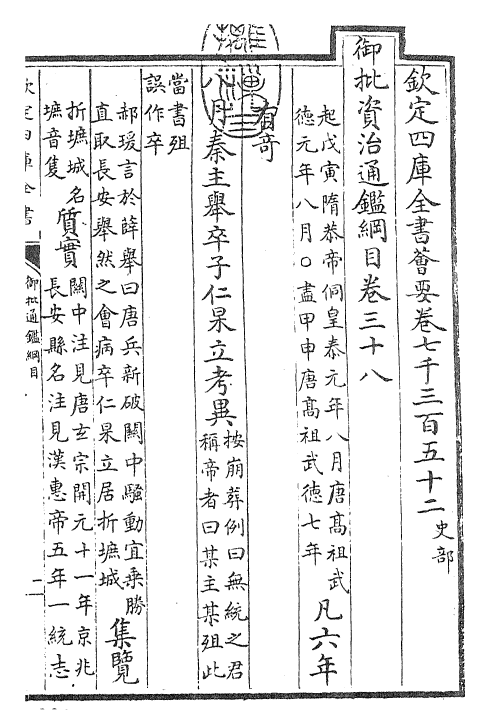 欽定四庫全書薈要卷七千三百五十二史部
御批資治通鑑綱目卷三十八
起戊寅隋恭帝侗皇泰元年八月唐髙祖武
德元年八月○盡甲申唐髙祖武德七年
凡六年
八月秦主舉卒子仁杲立考異
按崩葬例曰無統之君
稱帝者曰某主某殂此
當書殂
誤作卒
郝瑗言於薛舉曰唐兵新破關中騷動宜乗勝
直取長安舉然之會病卒仁杲立居折墌城
集覽
折墌城名
墌音隻
質實
關中注見唐玄宗開元十一年京兆
長安縣名注見漢惠帝五年一統志
欽定四庫全書
御批通鑑綱目